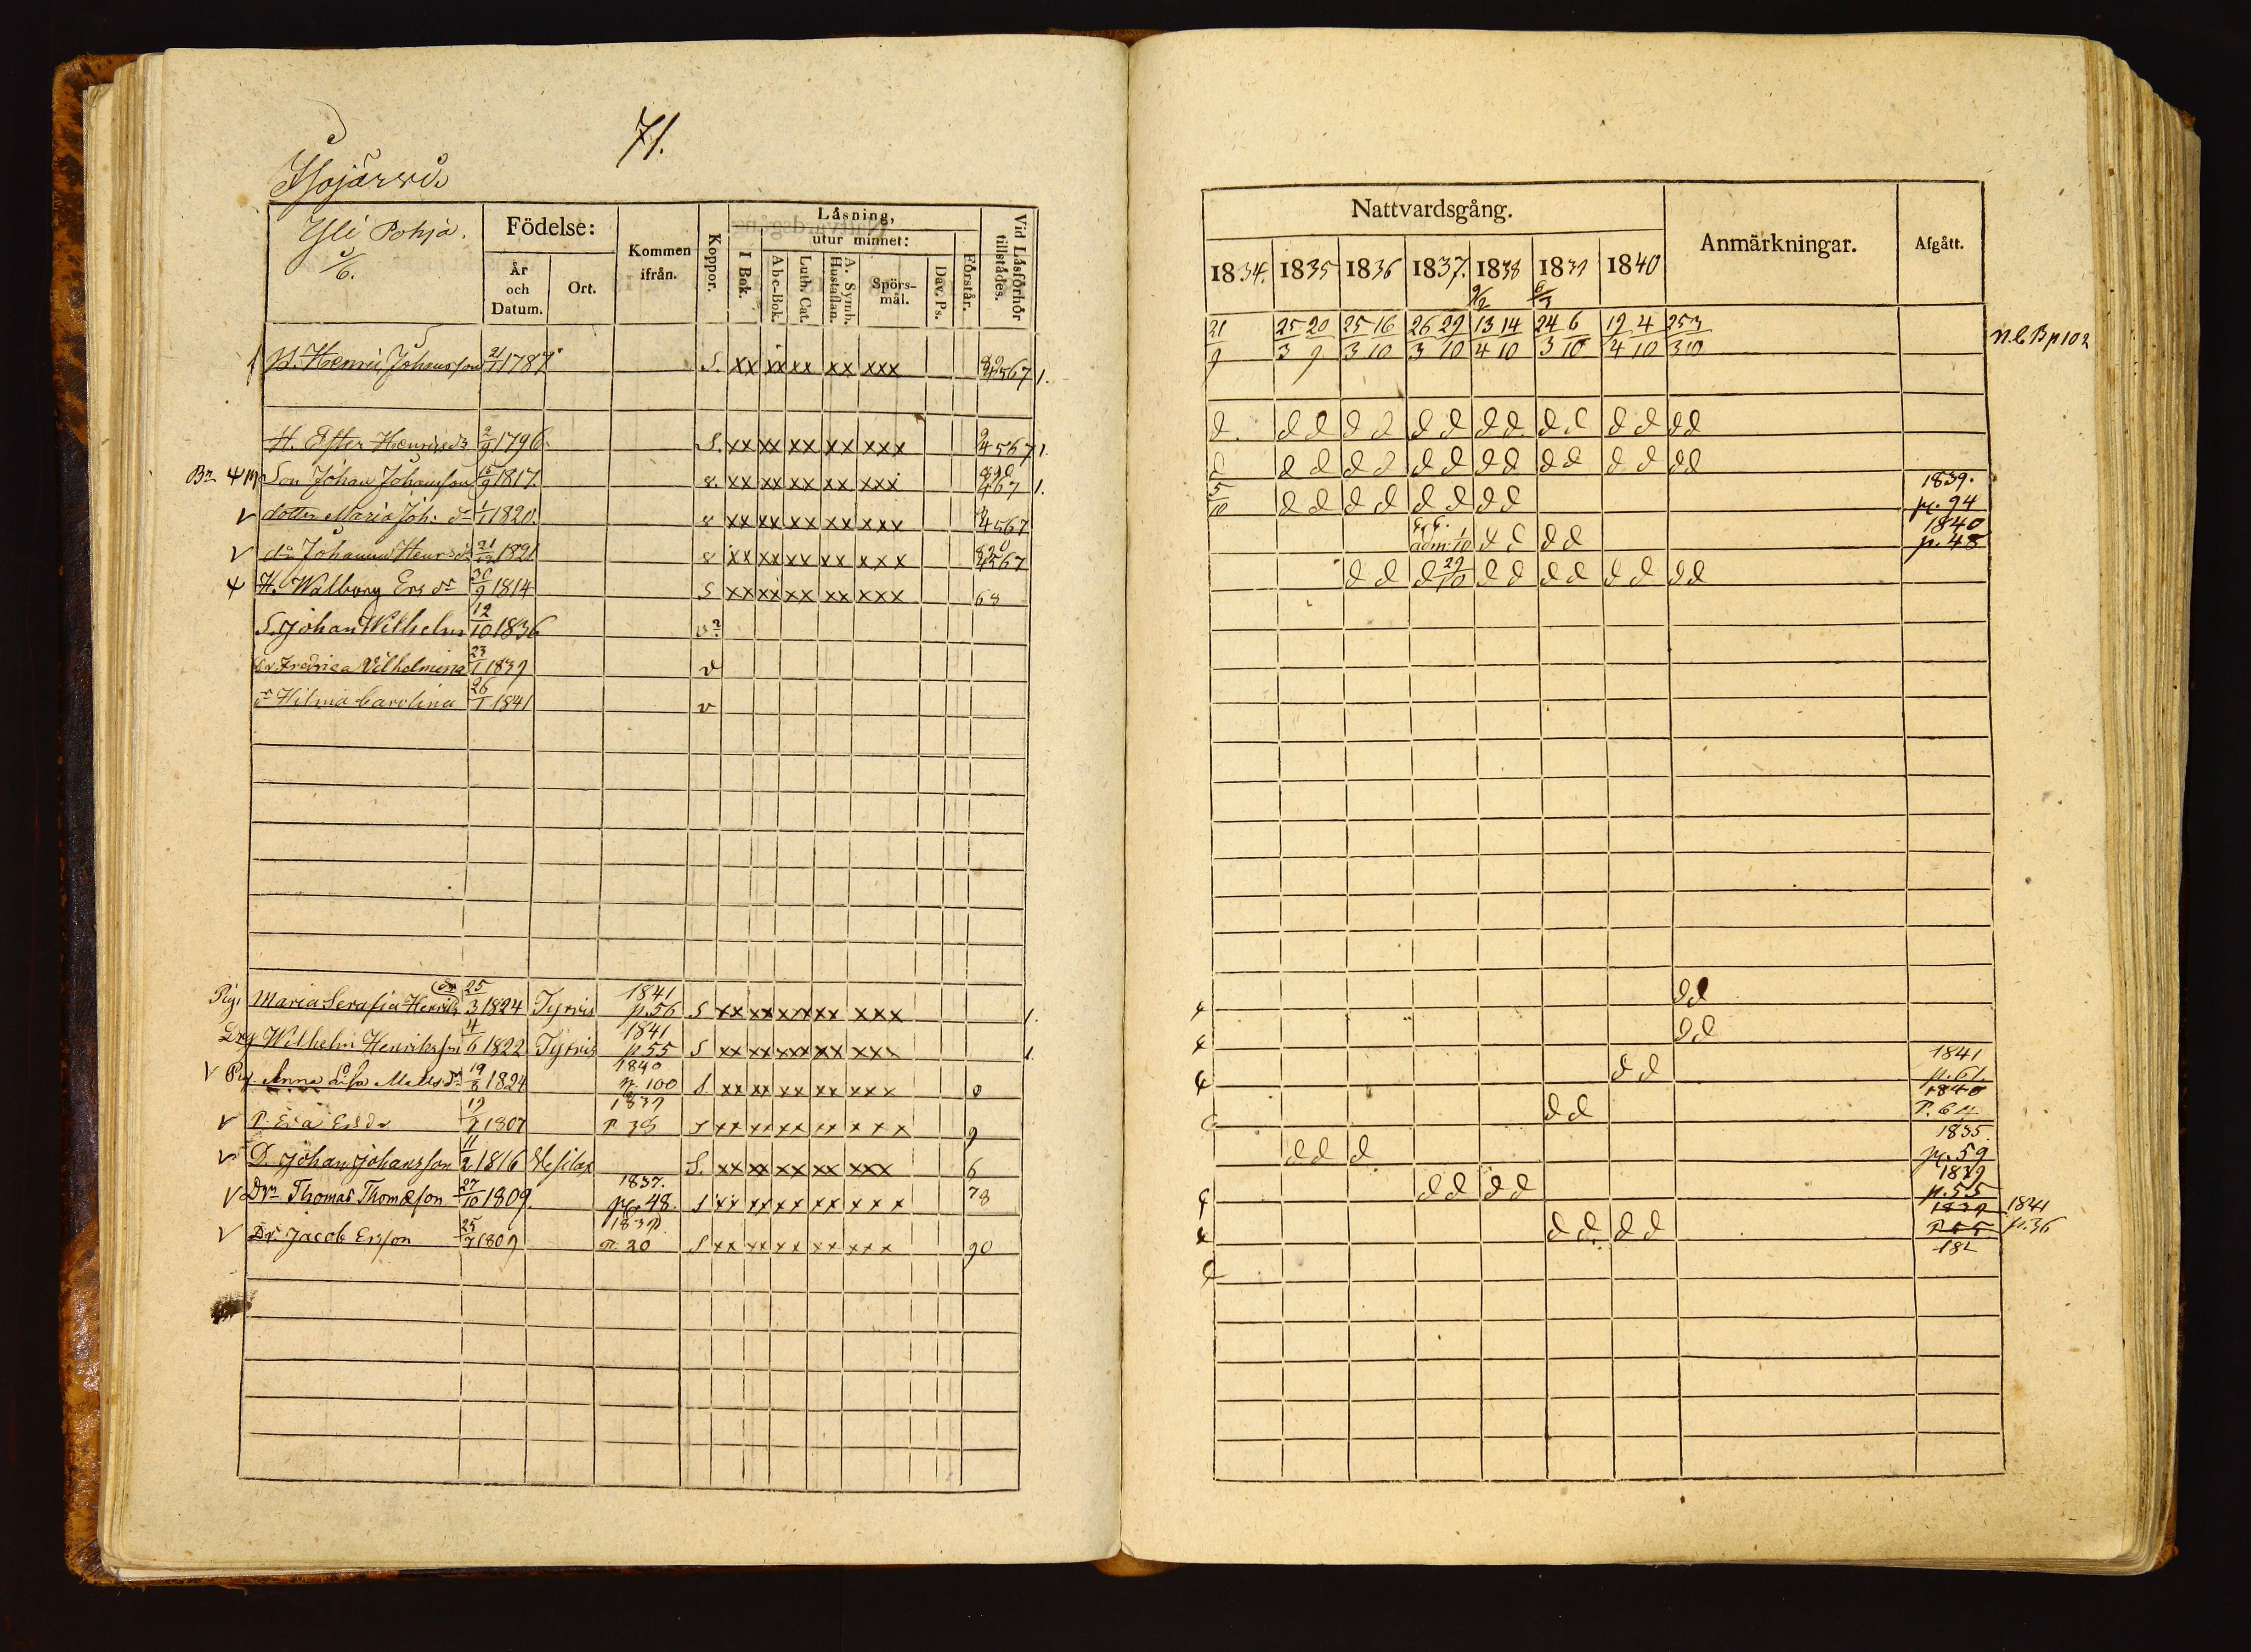 71.
Isojärvi.
Yli Pohja.
1/6.
Födelse:
År och Datum.
Ort.
Kommen ifrån.
Koppor.
Läsning,
I Bok.
utur minnet:
Abc-Bok.
Luth. Cat.
A. Symb. Hustaflan.
Spörs-mål.
Dav. Ps.
Förstår.
Vid Läsförhör tillstädes.
B. Henric Johansson 21/1 1787 S. xx xx xx xx xxx 4567 1.
H. Ester Henricsdr 2/9 1796. S. xx xx xx xx xxx 4567 1.
Br Son Johan Johansson 15/9 1817. s. xx xx xx xx xxx 467 1.
v dotter Maria Joh. dr 1/1 1820. s xx xx xx xx xxx 4567
v do Johanna Henrsdr 21/12 1821 s xx xx xx xx xxx 4567
H. Walborg Ersdr 30/9 1814 S xx xx xx xx xxx 68
S. Johan Wilhelm 12/10 1836 v
dr Fredrica Vilhelmina 23/1 1839 v
dr Hilma Carolina 26/1 1841 v
Pig. Maria Serafia Henriks dr 25/3 1824 Tyrvis 1841 p.56 S xx xx xx xx xxx 1.
Drg Wilhelm Henriksson 4/6 1822 Tyrvis 1841 p 55 S xx xx xxx xx xxx 1
v Pig. Anna Lisa Mattsdr 19/8 1824 1840 p. 100 S xx xx xx xx xxx 0
v P. Eva Ersdr 1807 1839 S xx xx xx xx xxx 9
v D. Johan Johansson 11/2 1816 Vesilax S. xx xx xx xx xxx 6
v Drn Thomas Thomasson 27/10 1809. 1837. pg. 48. S xx xx xx xx xxx 78
v Dr Jacob Ersson 25/7 1809 1839 p. 20 S xx xx xx xx xxx 90
Nattvardsgång.
Anmärkningar.
Afgått.
1834. 1835 1836 1837. 1838 1839 1840
21/9 25/3 20/9 25/3 16/10 26/3 29/10 13/4 14/10 24/3 6/10 12/4 4/10 25/3 3/10
N.C.B p 102
d. d d d d d d d d d d d d d d
d d d d d d d d d d d d d d d
5/10 d d d d d d d d 1839. pg. 94
adm. 1/10 d d d d 1840 p. 48
d d d 29/10 d d d d d d d d
d d
d d
d d 1841 p. 61.
d d 1840 P. 64.
d d d 1835. pg. 59
d d d d 1839 p. 55
d d d d 1839 1841 p. 36